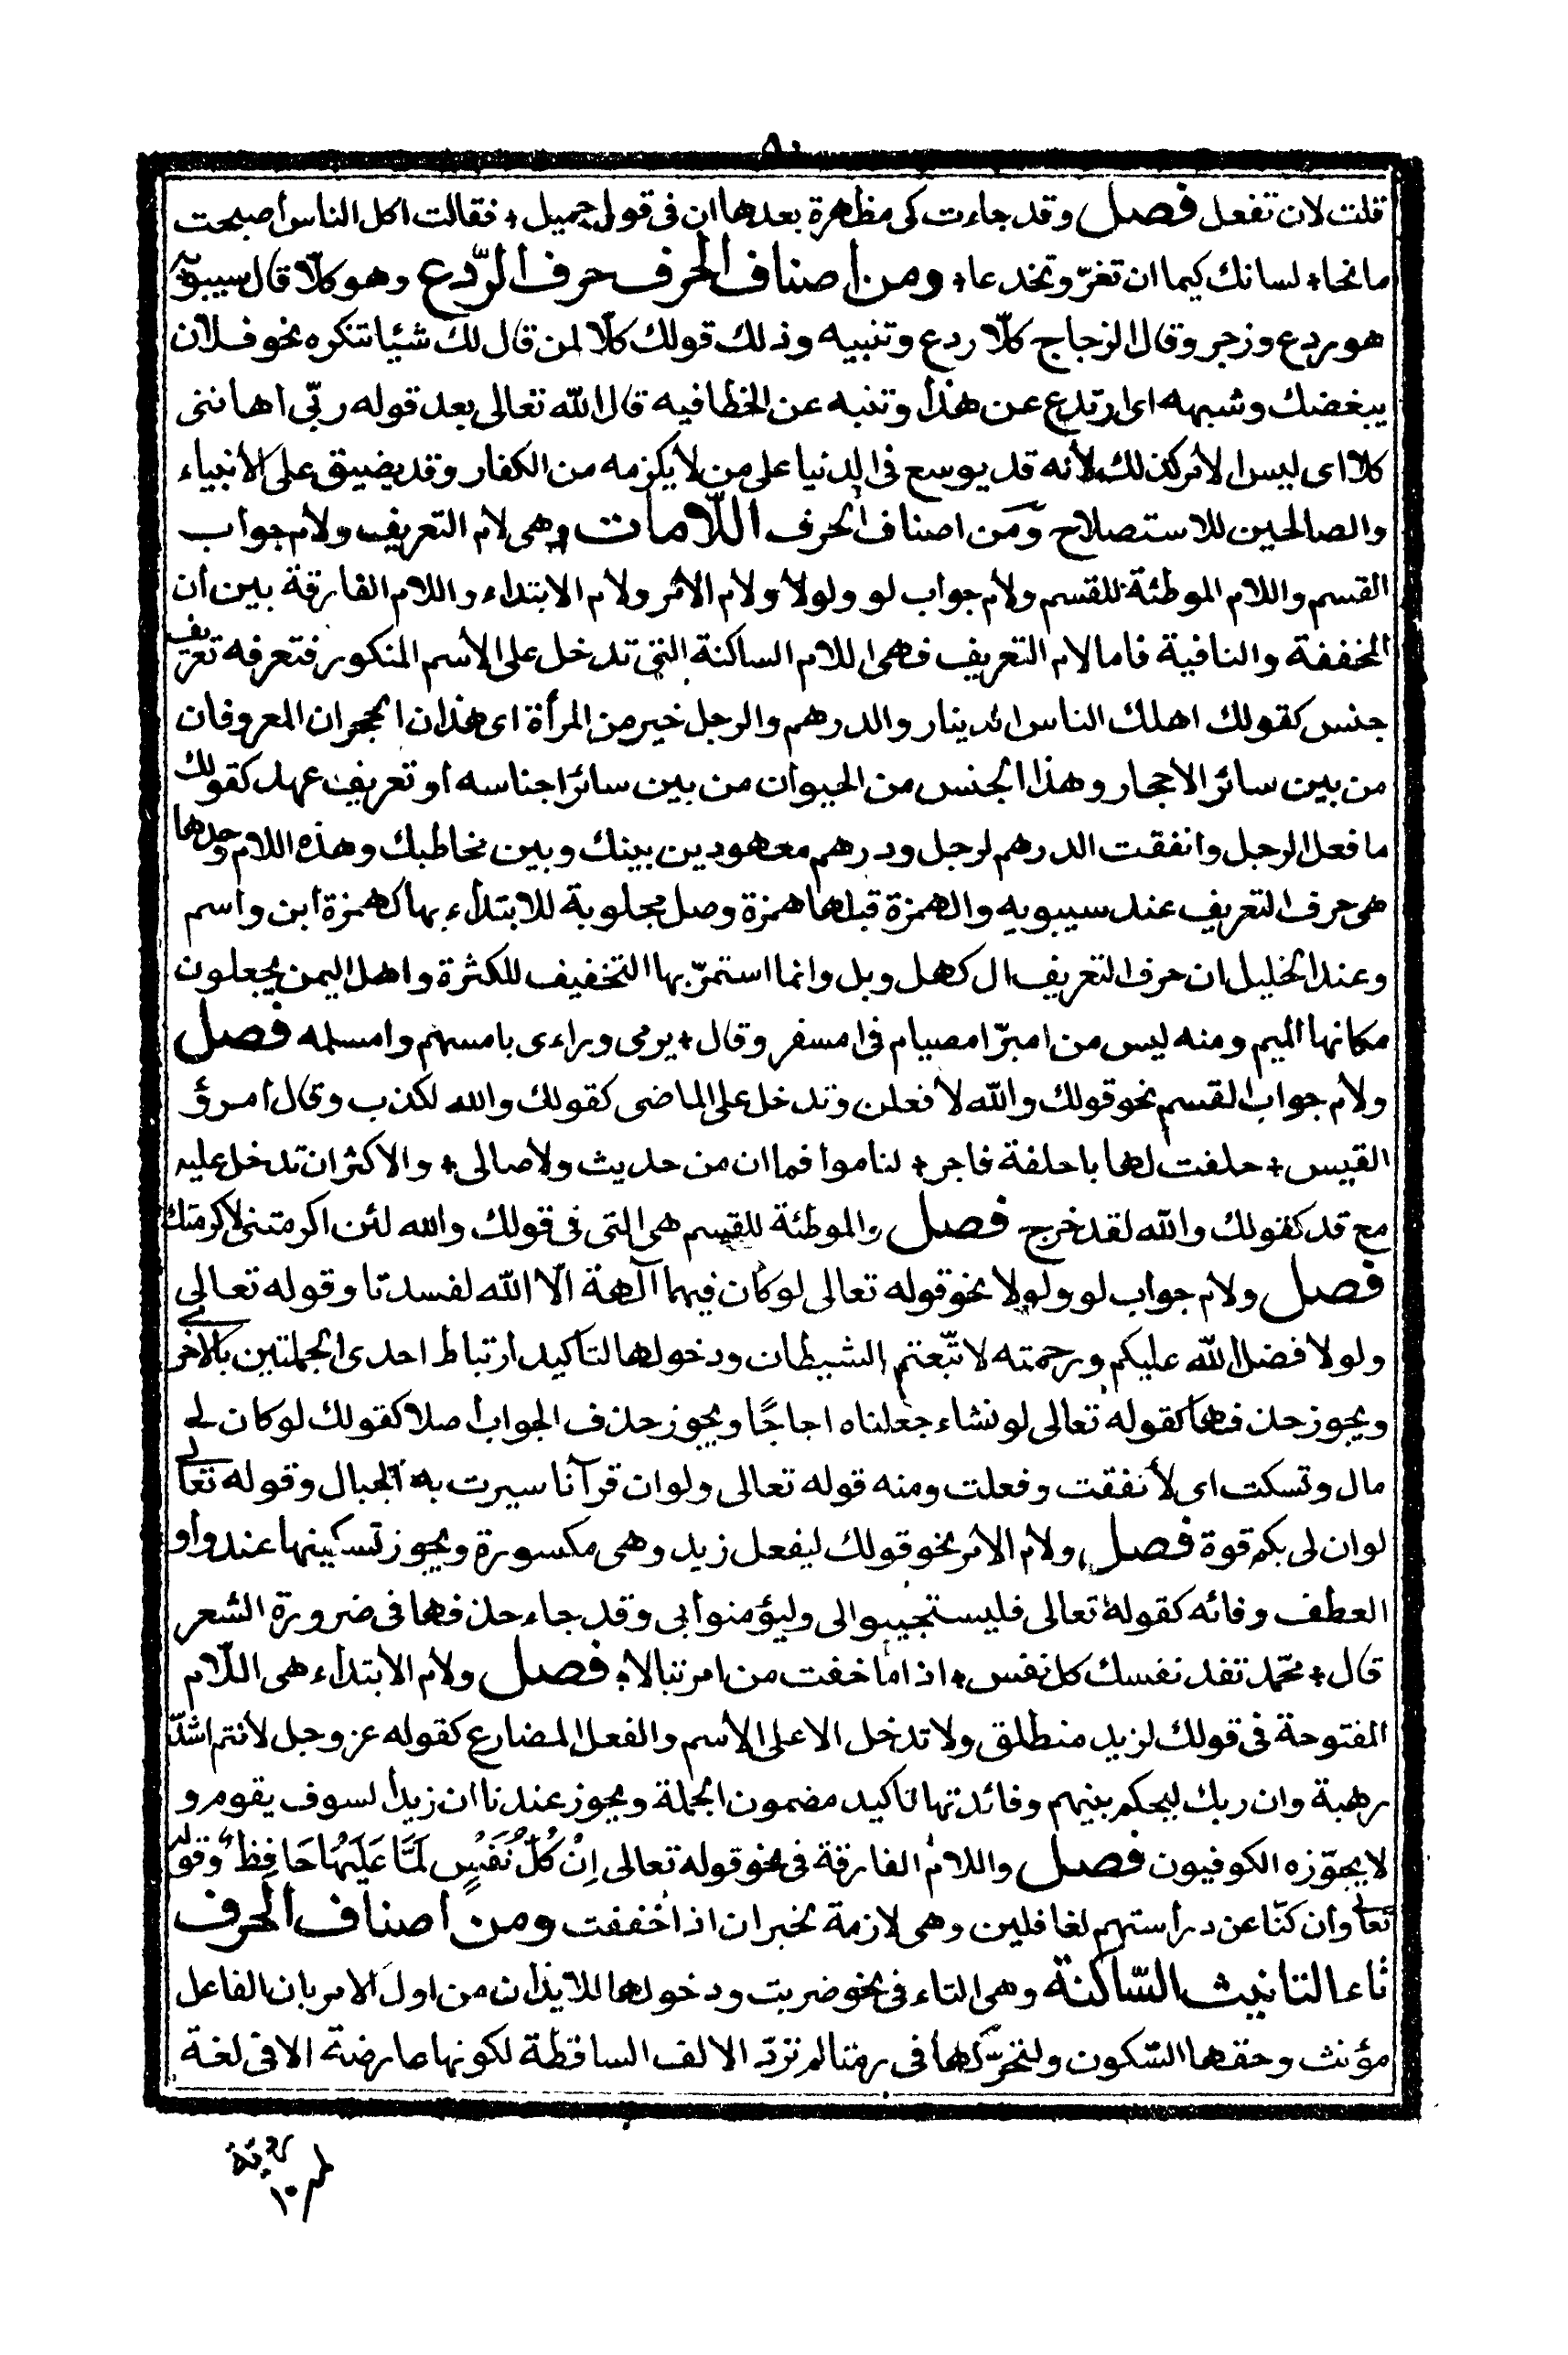 ٩٠
قلت لان تفعل فصل وقد جاءت كى مظهرة بعدها ان فى قول جميل ٭ فقالت اكل الناس اصبحت
مانحا ٭ لسانك كيما ان تغرّ وتخدعا ٭ ومن اصناف الحرف حرف الرّدع وهو كلّا قال سيبويه
هو ردع وزجر وقال الزجاج كلّا ردع وتنبيه وذلك قولك كلّا لمن قال لك شئيا تنكره نحو فلان
يبغضك وشبهه اى ارتدع عن هذا وتنبه عن الخطا فيه قال الله تعالى بعد قوله ربّى اهاننى
كلا اى ليس الأمر كذلك لأنه قد يوسع فى الدنيا على من لا يكرمه من الكفار وقد يضيق على الأنبياء
والصالحين للاستصلاح ومن اصناف الحرف اللّامات وهى لام التعريف ولام جواب
القسم واللام الموطئة للقسم ولام جواب لو ولولا ولام الأمر ولام الابتداء واللام الفارقة بين ان
المخففة والنافية فاما لام التعريف فهى اللام الساكنة التى تدخل على الأسم المنكور فتعرفه تعريف
جنس كقولك اهلك الناس الدينار والدرهم والرجل خير من المرأة اى هذان الحجران المعروفان
من بين سائر الاحجار وهذا الجنس من الحيوان من بين سائر اجناسه او تعريف عهد كقولك
ما فعل الرجل وانفقت الدرهم لرجل ودرهم معهودين بينك وبين مخاطبك وهذه اللام وحدها
هى حرف التعريف عند سيبويه والهمزة قبلها همزة وصل مجلوبة للابتداء بها كهمزة ابن واسم
وعند الخليل ان حرف التعريف ال كهل وبل وانما استمرّ بها التخفيف للكثرة واهل اليمن يجعلون
مكانها الميم ومنه ليس من امبرّ امصيام فى امسفر وقال ٭ يرمى وراءى بامسهم وامسلمه فصل
ولام جواب القسم نحو قولك والله لأفعلن وتدخل على الماضى كقولك والله لكذب وقال امرؤ
القيس ٭ حلفت لها باحلفة فاجر ٭ لناموا فما ان من حديث ولا صالى ٭ والاكثر ان تدخل عليه
مع قد كقولك والله لقد خرج فصل والموطئة للقسم هى التى فى قولك والله لئن اكرمتنى لاكرمتك
فصل ولام جواب لو ولولا نحو قوله تعالى لو كان فيهما آلهة الّا الله لفسدتا وقوله تعالى
ولولا فضل الله عليكم ورحمته لاتّبعتم الشيطان ودخولها لتأكيد ارتباط احدى الجملتين بالاخرى
ويجوز حذفها كقوله تعالى لو نشاء جعلناه اجاجًا ويجوز حذف الجواب اصلا كقولك لو كان لى
مال وتسكت اى لأنفقت وفعلت ومنه قوله تعالى ولو ان قرآنا سيرت به الجبال وقوله تعالى
لو ان لى بكم قوة فصل ولام الأمر نحو قولك ليفعل زيد وهى مكسورة ويجوز تسكينها عند واو
العطف وفائه كقوله تعالى فليستجيبوا لى وليؤمنوا بى وقد جاء حذفها فى ضرورة الشعر
قال ٭ محمّد تفد نفسك كل نفس ٭ اذا ما خفت من امر تبالا ٭ فصل ولام الابتداء هى اللّام
المفتوحة فى قولك لزيد منطلق ولا تدخل الا على الأسم والفعل المضارع كقوله عز وجل لأنتم اشدّ
رهبة وان ربك ليحكم بينهم وفائدتها تأكيد مضمون الجملة ويجوز عندنا ان زيدا لسوف يقوم و
لا يجوّزه الكوفيون فصل واللام الفارقة فى نحو قوله تعالى اِنْ كُلُّ نَفْسٍ لَمَّا عَلَيْهَا حَافِظٌ وقوله
تعالى وان كنّا عن دراستهم لغافلين وهى لازمة لخبر ان اذا خففت ومن اصناف الحرف
تاء التانيث السّاكنة وهى التاء فى نحو ضربت ودخولها للايذان من اول الامر بان الفاعل
مؤنث وحقها السّكون ولتحرّكها فى رمتا لم تردّ الالف الساقطة لكونها عارضة الا فى لغة